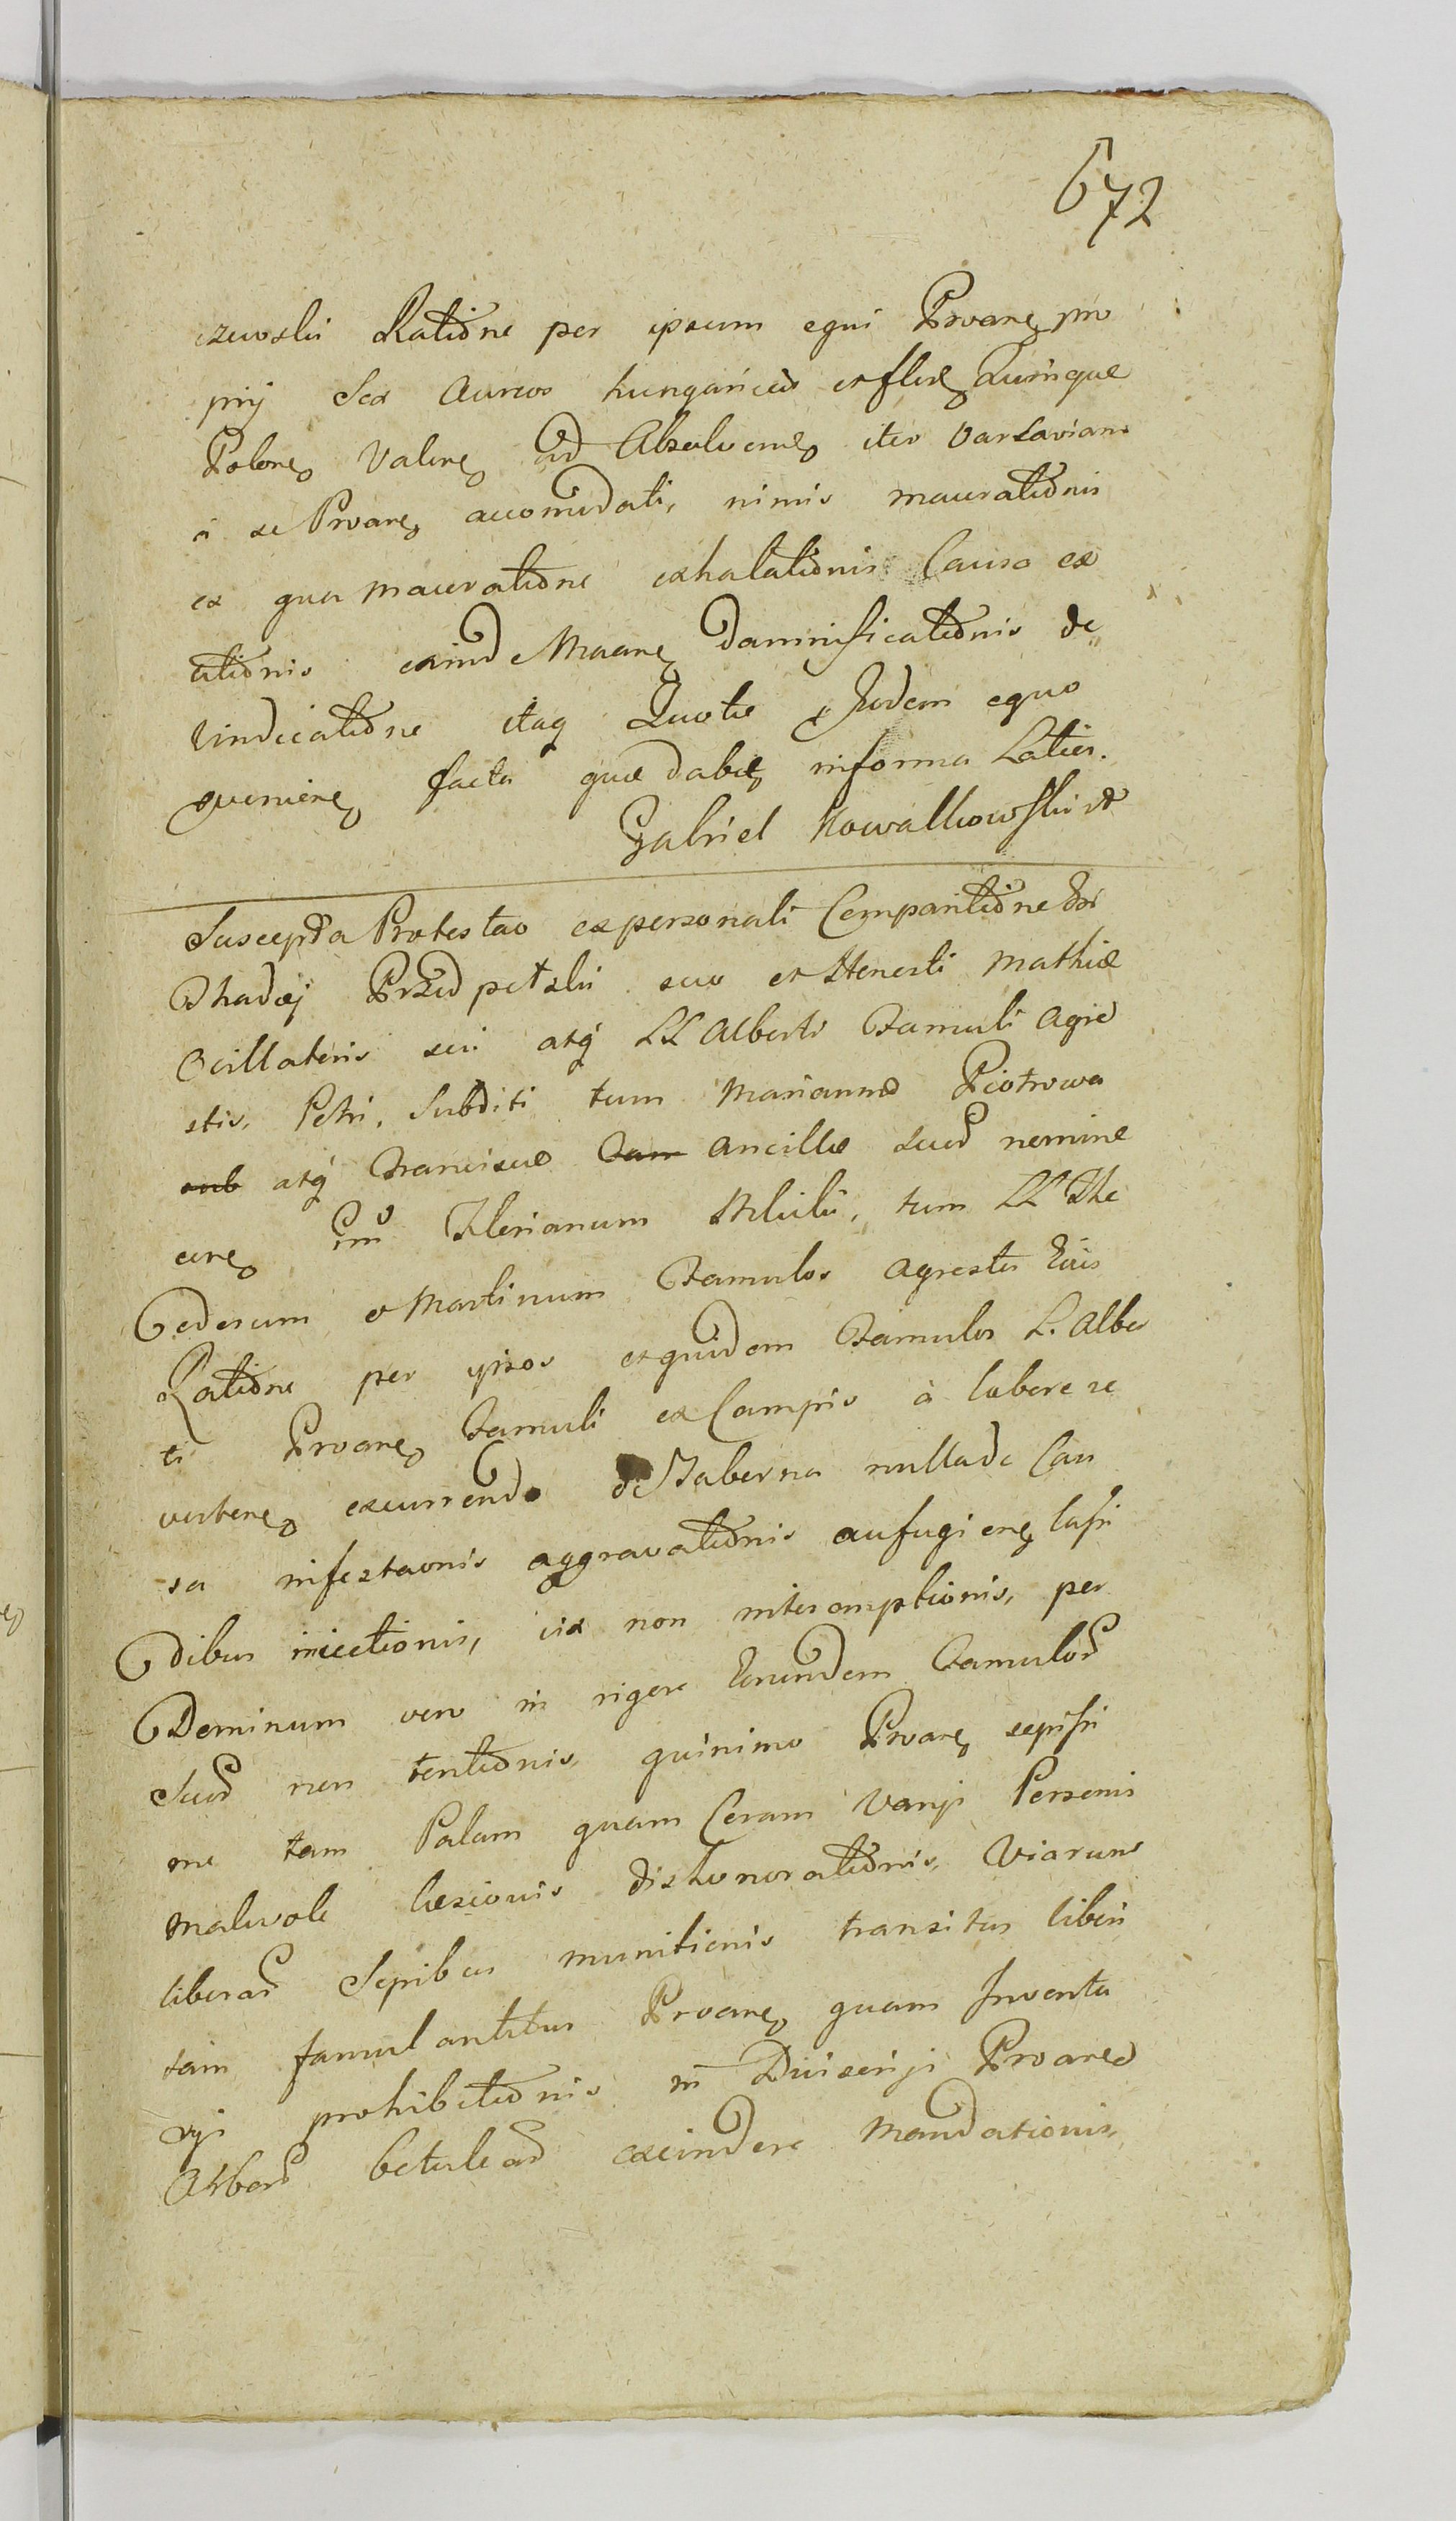 672
czewski Ratiōne per ipsum equi Protane pro
prij Sex Aureos hungaricos et flor Quinque
Polone valen ad Absolvend iter Varsavian
a se Protan accomodati, nimis maceratiōnis
ex qua maceratiōne exhalatiōnis Causa ex
atiōnis exinde Maane Damnificatiōnis de
vindicatiōne itaq Quotæ Eodem equo
provenien facta quæ dabit in forma Latior.
Gabriel Kowalkowski
Suscepta Protestao ex personali Comparitiōne
Thadæj Przedpełski suo et Honesti Mathiæ
Oeillatoris sui atq LL Alberti Famuli Agre
stis, Petri, Subditi tum Mariannæ Piotrowa
sub atq Franciscæ Fam Ancillæ suo nomine
Florianum tum LL The
oderum et Martinum Famulos Agrestes
Ratiōne per ipsos et quidem Famulos L. Alber
ti Protan Famuli ex Campis à labore re
verten excurrendo de Taberna nulla de Cau
sa infestaonis aggravatiōnis aufugien
dibus iniectionis, vix non interemptionis, per
Dominum vero in rigore Eorundem Famulor
suor non tentiōnis, quinimo Protan sepissi
me tam Palam quam Coram Varijs Personis
malevole læsionis dishonoratiōnis, Viarum
liberar Sepibus munitionis transitus liberi
tam famulantibus Protane quam Inventa
rijs prohibitiōnis in Protane
Arbor betulear excindere Mandationis,